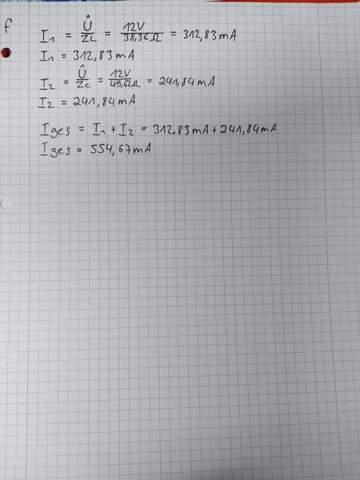 f I₁ = Û/ZL = 12V/38,36Ω = 312,83mA
I₁ = 312,83mA
I₂ = Û/Zc = 12V/49,62Ω = 241,84mA
I₂ = 241,84mA
Iges = I₁ + I₂ = 312,83mA + 241,84mA
Iges = 554,67mA